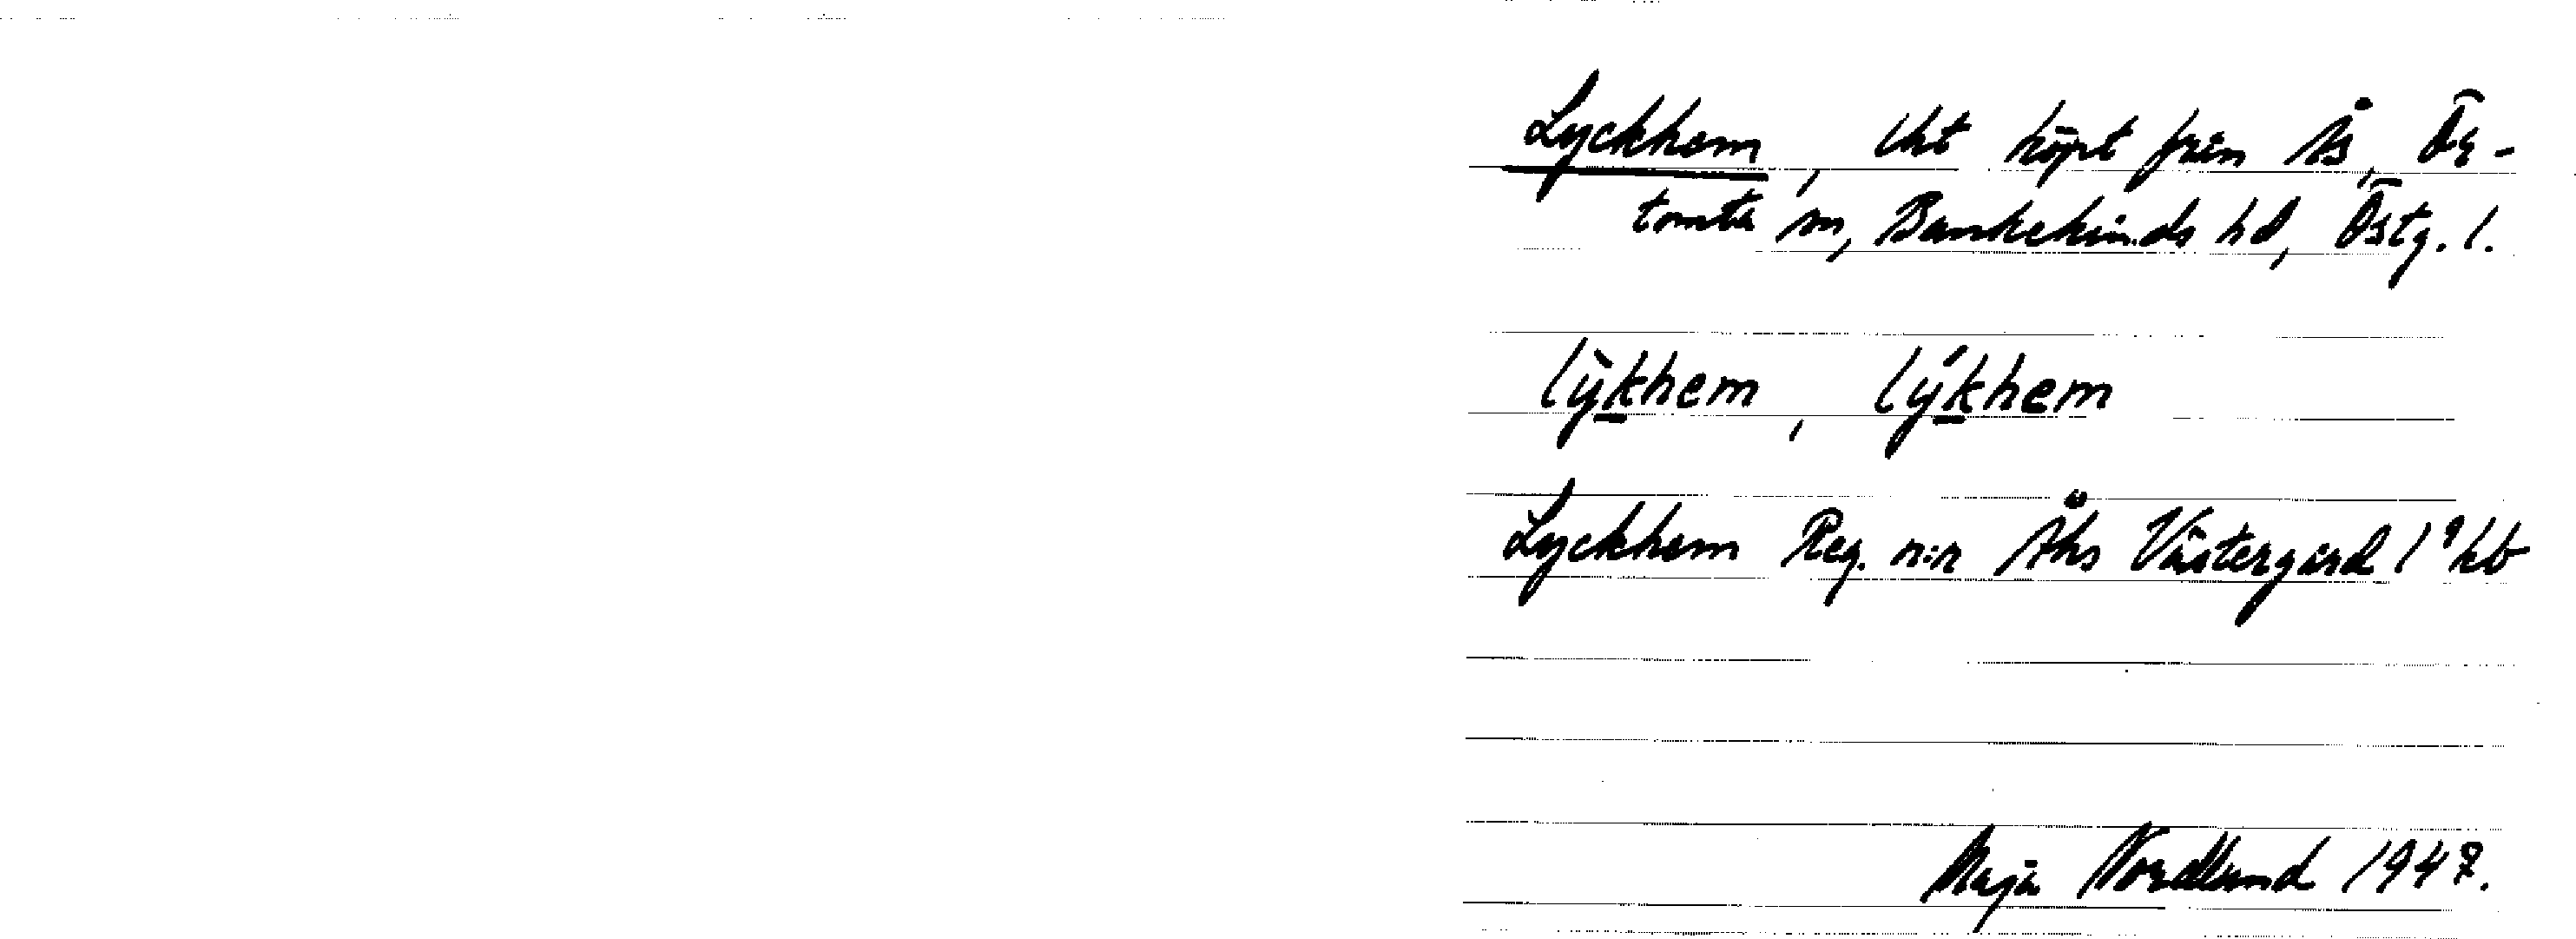 Lyckhem, lht köpt från Ås, Ör-
tomta sn, Bankekinds hd, Östg. l.
lỳkhem, lýkhem
Lyckhem Reg. n:r Åhs Västergård 1⁹ kb
Maja Nordlund 1947.